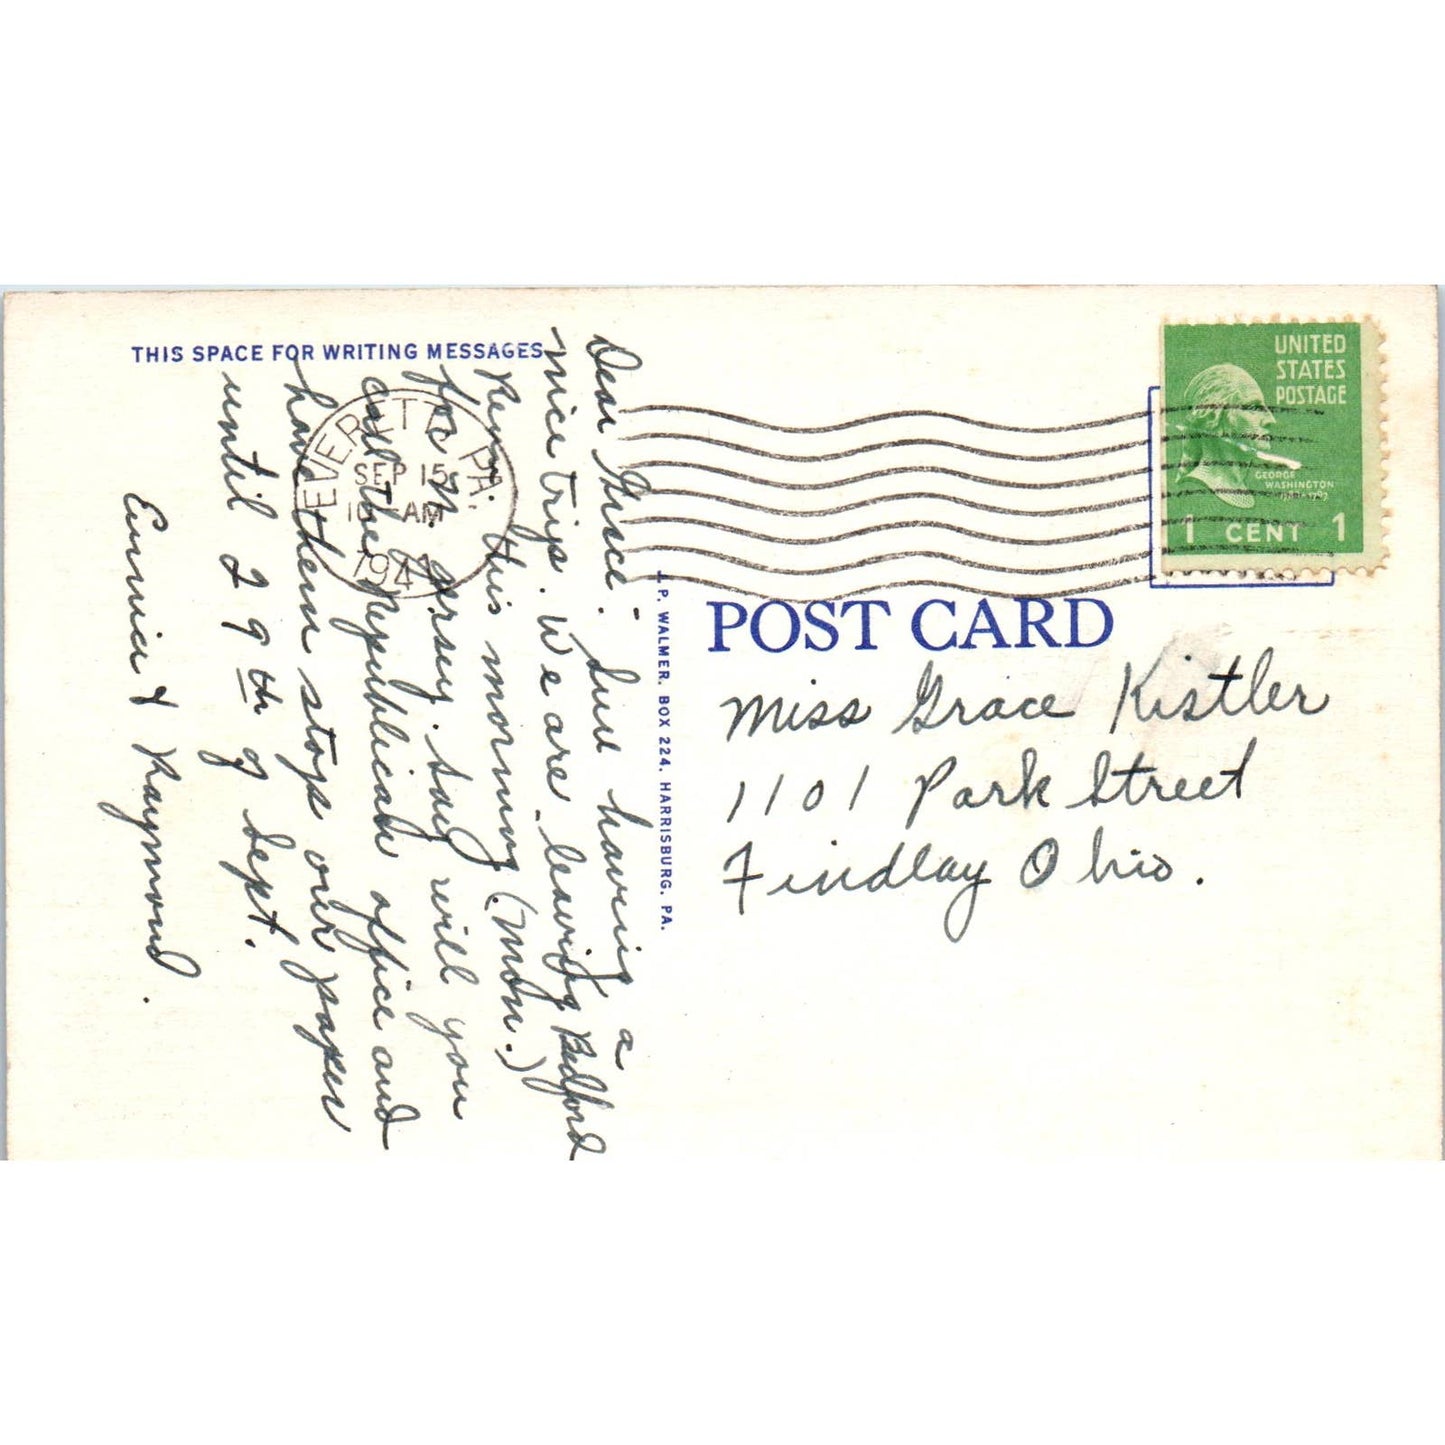 THIS SPACE FOR WRITING MESSAGES
Dear Grace - Sure having a
nice trip. We are leaving Bedford
Penn. this morning (Mon.)
for N. Jersey. Say will you
call the Republican office and
have them stop our paper
until 29th of Sept.
Eunice & Raymond.
EVERETT PA.
SEP 15
AM
194
J. P. WALMER, BOX 224, HARRISBURG, PA.
UNITED
STATES
POSTAGE
GEORGE
WASHINGTON
1 CENT 1
POST CARD
Miss Grace Kistler
1101 Park Street
Findlay Ohio.